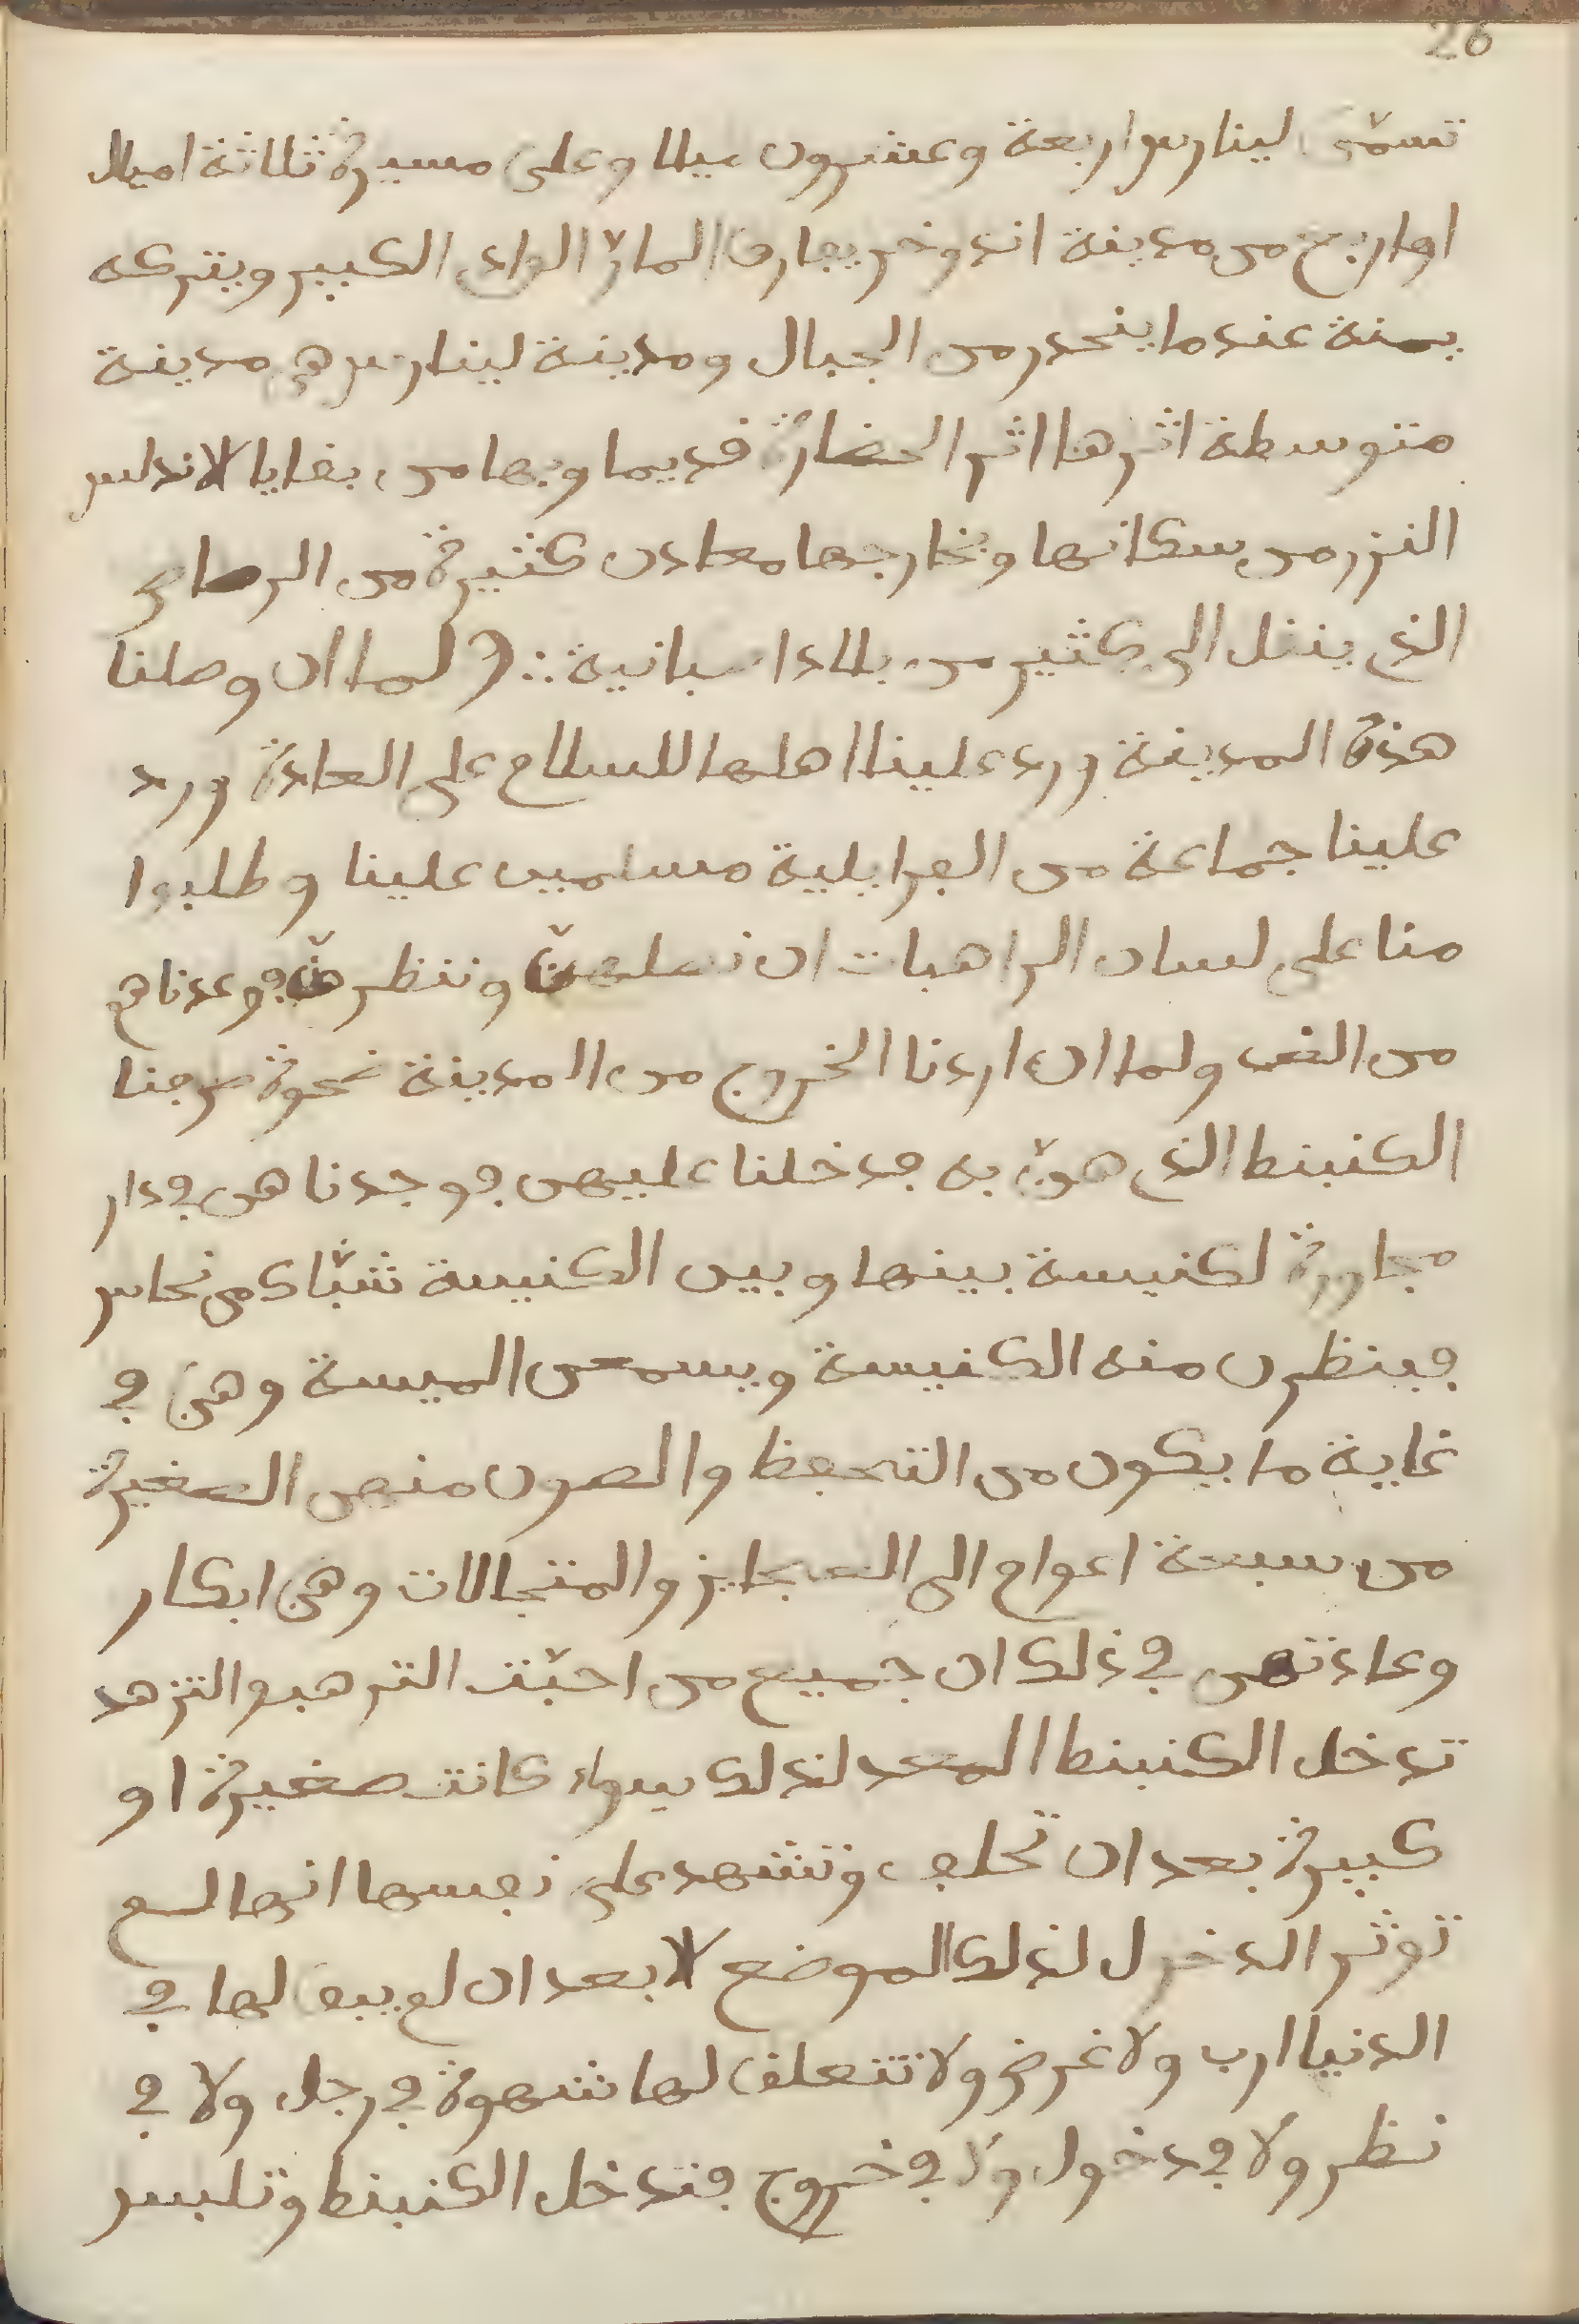 26
تسمّى لينارس اربعة وعشرون ميلا وعلى مسيرة ثلاثة اميال
او اربع من مدينة اندوخر يفارق المارّ الواد الكبير ويتركه
يمنة عندما ينحدر من الجبال ومدينة لينارس هي مدينة
متوسطة اثرها اثر الحضارة قديما وبها من بقايا الاندلس
النزر من سكانها وبخارجها معادن كثيرة من الرصاص
الذي ينقل الى كثير من بلاد اسبانية ∴ ولما ان وصلنا
هذه المدينة ورد علينا اهلها للسلام على العادة وورد
علينا جماعة من الفرايلية مسلمين علينا وطلبوا
منا على لسان الراهبات ان نصلهنّ وننظرهنّ فوعدناهم
من الغد ولما ان اردنا الخروج من المدينة ضحوة عرجنا
الكنبنط الذي هنّ به فدخلنا عليهن فوجدناهن في دار
مجاورة لكنيسة بينها وبين الكنيسة شبّاك من نحاس
فينظرن منه الكنيسة ويسمعن الميسة وهنّ في
غاية ما يكون من التحفظ والصون منهن الصغيرة
من سبعة اعوام الى العجايز والمتجالات وهنّ ابكار
وعادتهن في ذلك ان جميع من احبّت الترهب والتزهد
تدخل الكنبنط المعد لذلك سواء كانت صغيرة او
كبيرة بعد ان تحلف وتشهد على نفسها انها لم
توثر الدخول لذلك الموضع الا بعد ان لم يبق لها في
الدنيا ارب ولا غرض ولا تتعلق لها شهوة في رجل ولا في
نظر ولا في دخول ولا في خروج فتدخل الكنبنط وتلبس